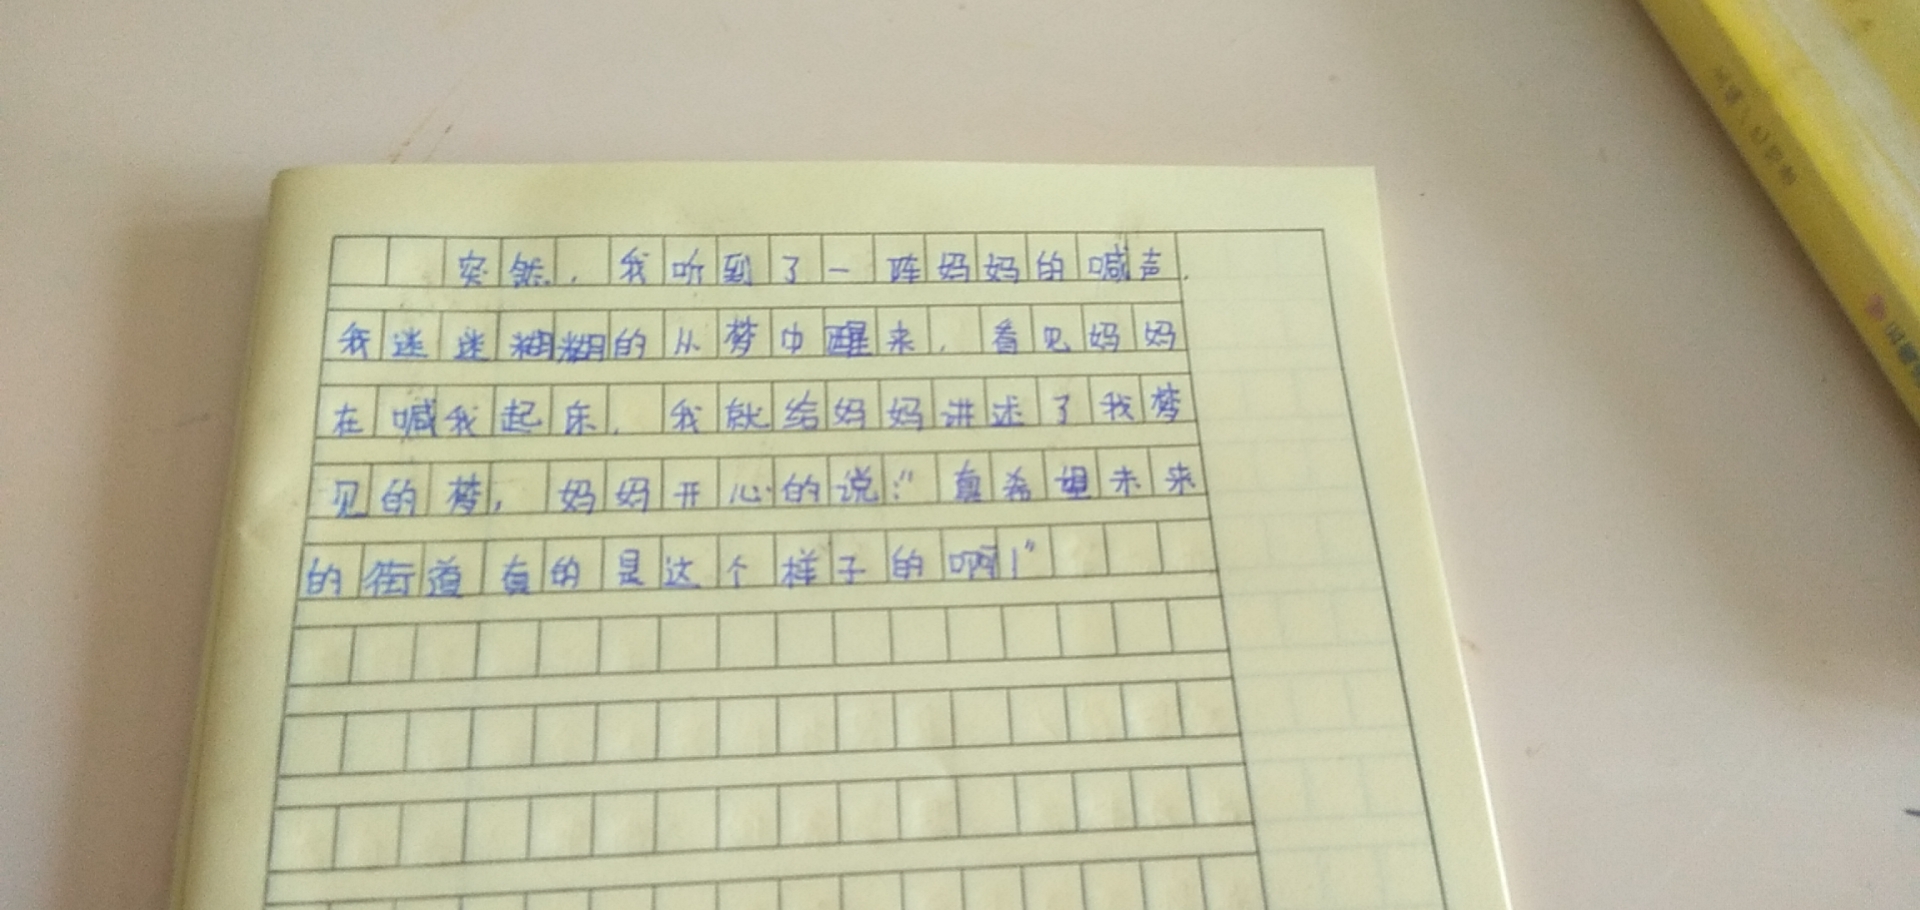 突然，我听到了一阵妈妈的喊声，
我迷迷糊糊的从梦中醒来，看见妈妈
在喊我起床，我就给妈妈讲述了我梦
见的梦，妈妈开心的说：“真希望未来
的街道真的是这个样子的啊！”